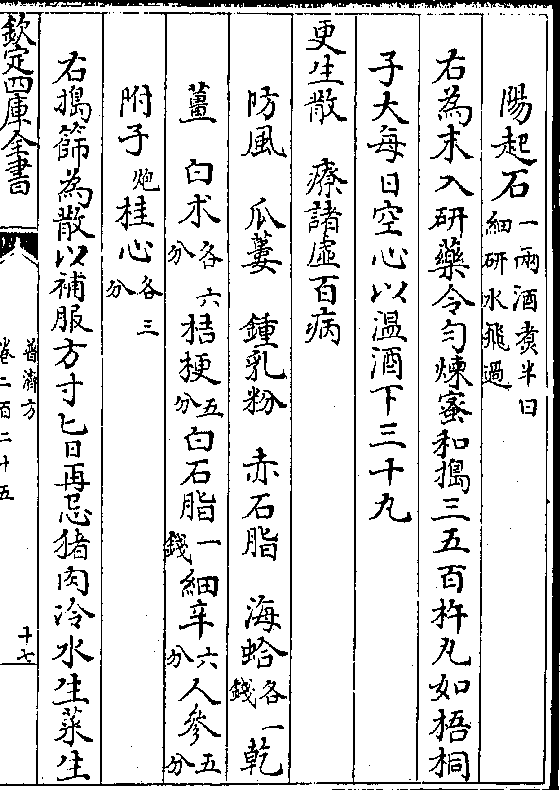 陽起石一兩酒煮半日細研水飛過
右為末入研藥令勻煉蜜和搗三五百杵丸如梧桐
子大每日空心以溫酒下三十丸
更生散 療諸虛百病
防風 瓜蔞 鍾乳粉 赤石脂 海蛤各一錢 乾
薑 白术各六分 桔梗五分 白石脂一錢 細辛六分 人參五分
附子炮 桂心各三分
右搗篩為散以補服方寸匕日再忌猪肉冷水生菜生
欽定四庫全書
普濟方
卷二百二十五
十七